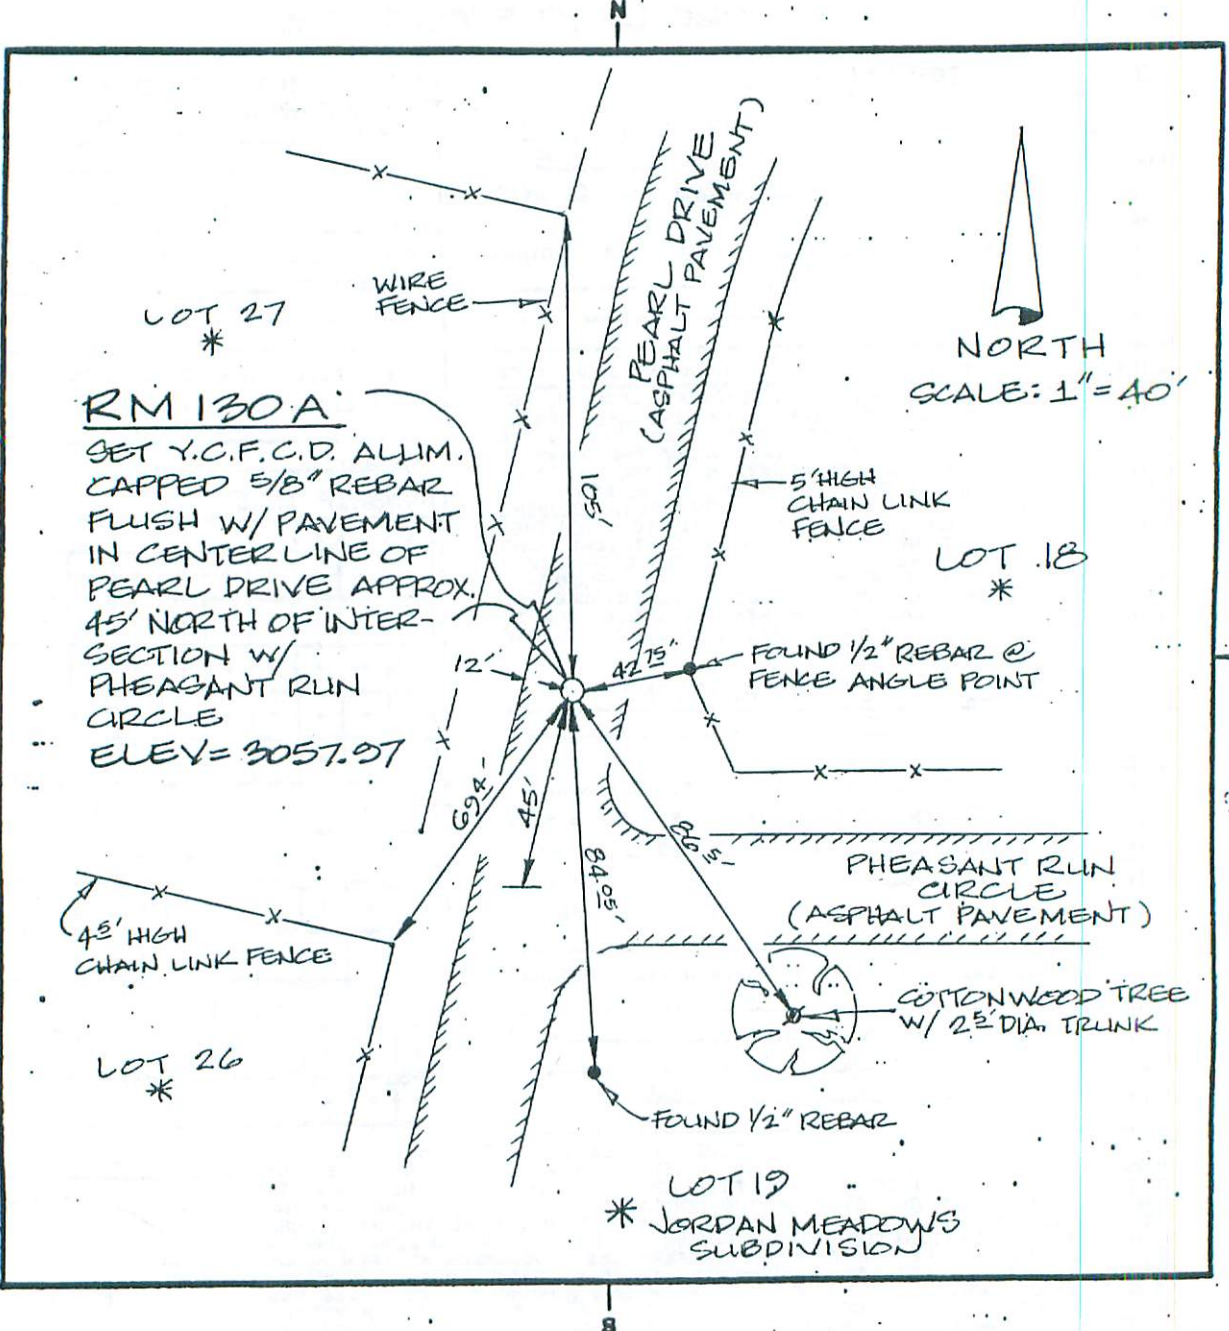 N
PEARL DRIVE
(ASPHALT PAVEMENT)
WIRE
FENCE
LOT 27
NORTH
SCALE: 1"=40'
RM 130A
SET Y.C.F.C.D. ALUM.
CAPPED 5/8" REBAR
FLUSH W/ PAVEMENT
IN CENTERLINE OF
PEARL DRIVE APPROX.
45' NORTH OF INTER-
SECTION W/
PHEASANT RUN
CIRCLE
ELEV= 3057.97
105'
5' HIGH
CHAIN LINK
FENCE
LOT 18
12'
42.75'
FOUND 1/2" REBAR @
FENCE ANGLE POINT
69.4'
45'
84.05'
86.5'
PHEASANT RUN
CIRCLE
(ASPHALT PAVEMENT)
4.5' HIGH
CHAIN LINK FENCE
COTTONWOOD TREE
W/ 2.5' DIA. TRUNK
LOT 26
FOUND 1/2" REBAR
LOT 19
JORDAN MEADOWS
SUBDIVISION
S